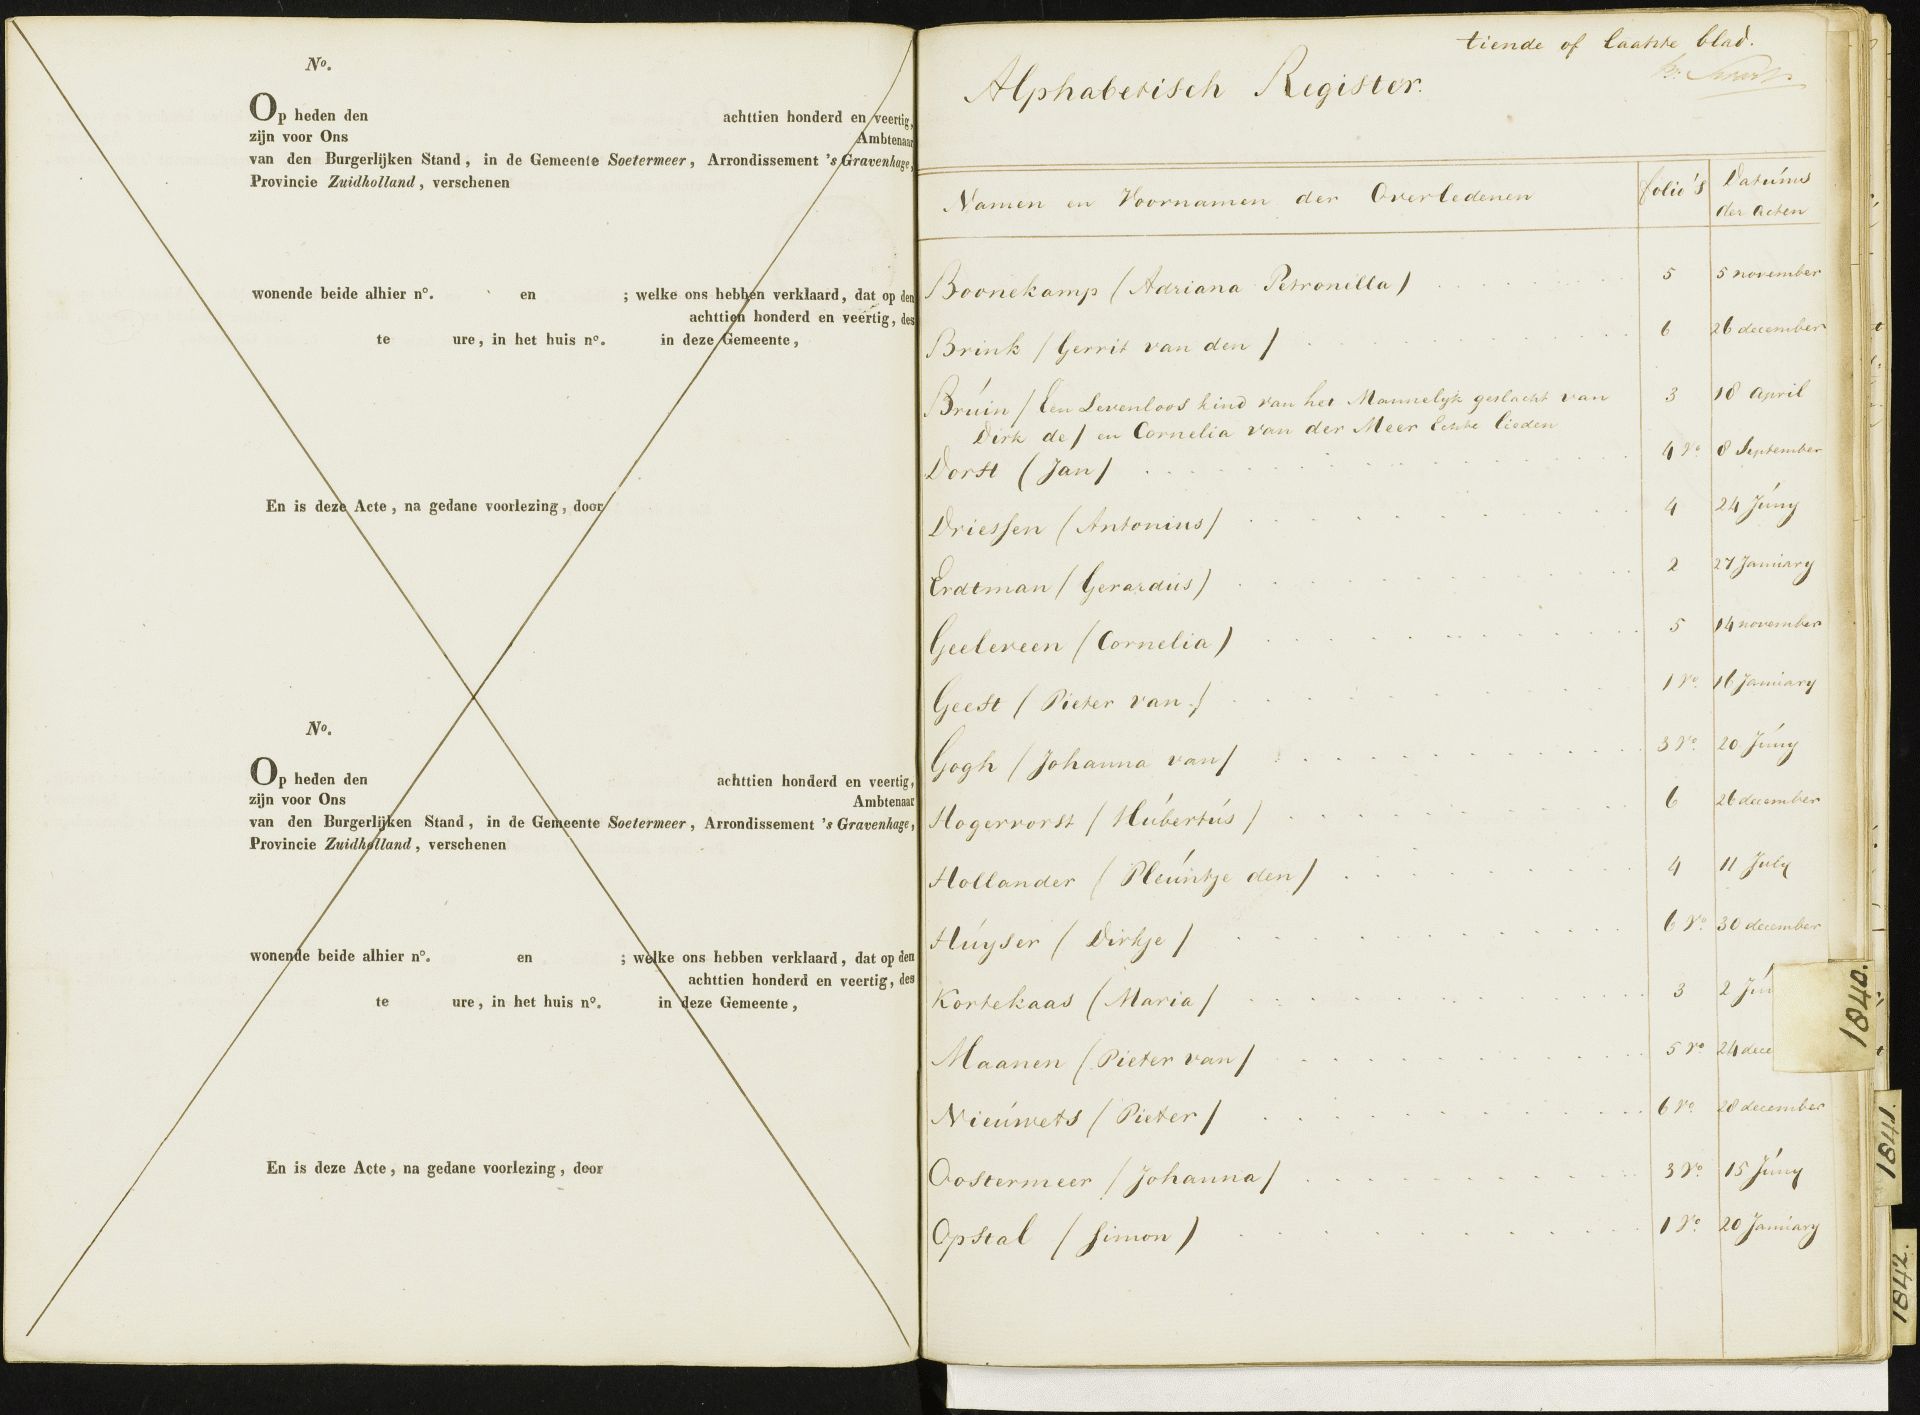 No.
Op heden den achttien honderd en veertig,
zijn voor Ons Ambtenaar
van den Burgerlijken Stand, in de Gemeente Soetermeer, Arrondissement 's Gravenhage,
Provincie Zuidholland, verschenen
wonende beide alhier no. en ; welke ons hebben verklaard, dat op den
achttien honderd en veertig, des
te ure, in het huis no. in deze Gemeente,
En is deze Acte, na gedane voorlezing, door
No.
Op heden den achttien honderd en veertig,
zijn voor Ons Ambtenaar
van den Burgerlijken Stand, in de Gemeente Soetermeer, Arrondissement 's Gravenhage,
Provincie Zuidholland, verschenen
wonende beide alhier no. en ; welke ons hebben verklaard, dat op den
achttien honderd en veertig, des
te ure, in het huis no. in deze Gemeente,
En is deze Acte, na gedane voorlezing, door
tiende of laatste blad.
Alphabetisch Register.
Namen en Voornamen der Overledenen folio's Datums der acten
Boonekamp (Adriana Petronilla) 5 5 november
Brink (Gerrit van den) 6 26 december
Bruin (Een Levenloos kind van het Mannelyk geslacht van 3 18 april
Dirk de) en Cornelia van der Meer Echte lieden
Dorst (Jan) 4 vo 8 September
Driessen (Antonius) 4 24 Juny
Erdtman (Gerardus) 2 27 January
Geelereen (Cornelia) 5 14 november
Geest (Pieter van) 1 vo 16 January
Gogh (Johanna van) 3 vo 20 Juny
Hogervorst (Hubertus) 6 26 december
Hollander (Pleuntje den) 4 11 July
Huyser (Dirkje) 6 vo 30 december
Kortekaas (Maria) 3 2 Jun
Maanen (Pieter van) 5 vo 24 dece
Nieuwets (Pieter) 6 vo 28 december
Oostermeer (Johanna) 3 vo 15 Juny
Opstal (Simon) 1 vo 20 January
1840.
1841.
1842.